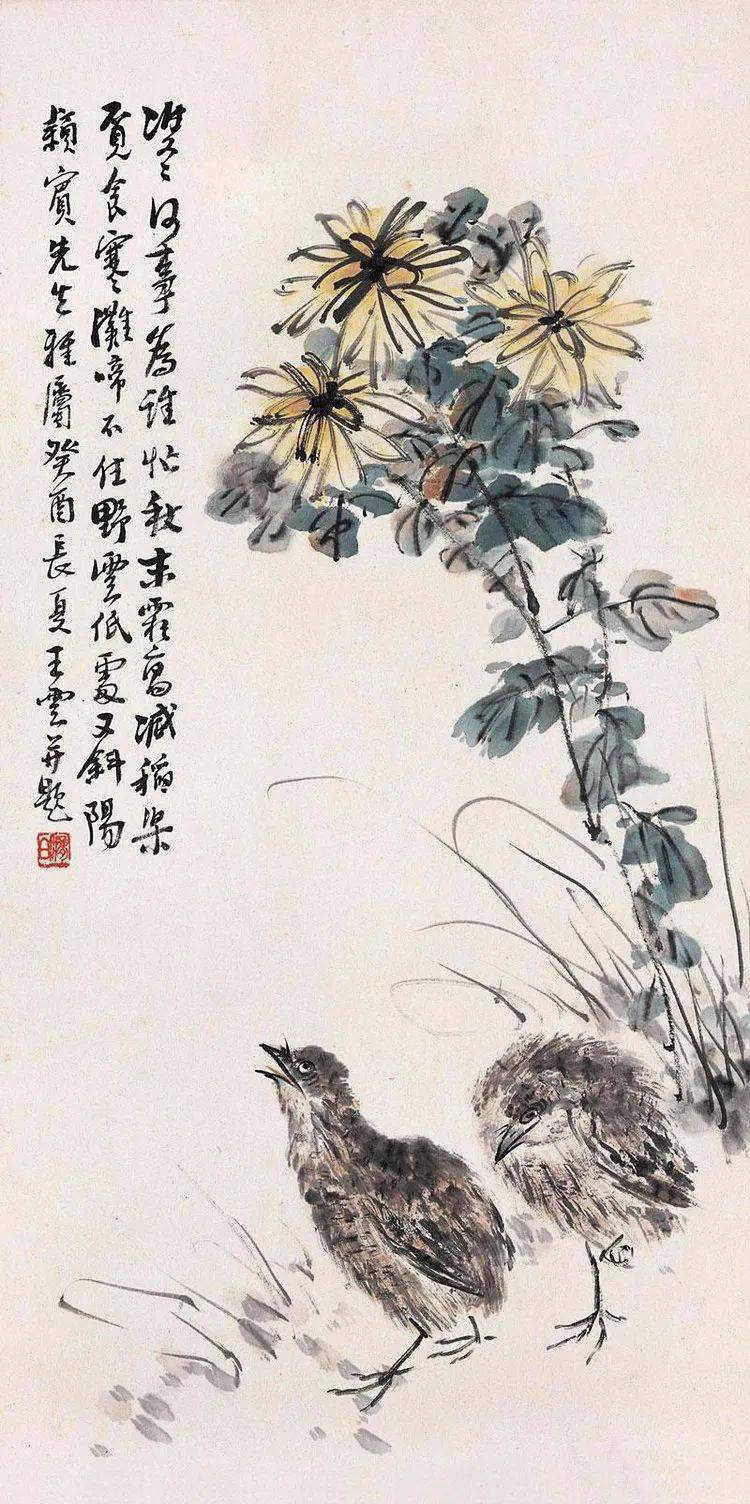 雙〻何事為誰忙秋末霜高減稻粱
覓食寒灘啼不住野雲低處又斜陽
賓先生雅屬癸酉長夏王雲并題
夢白